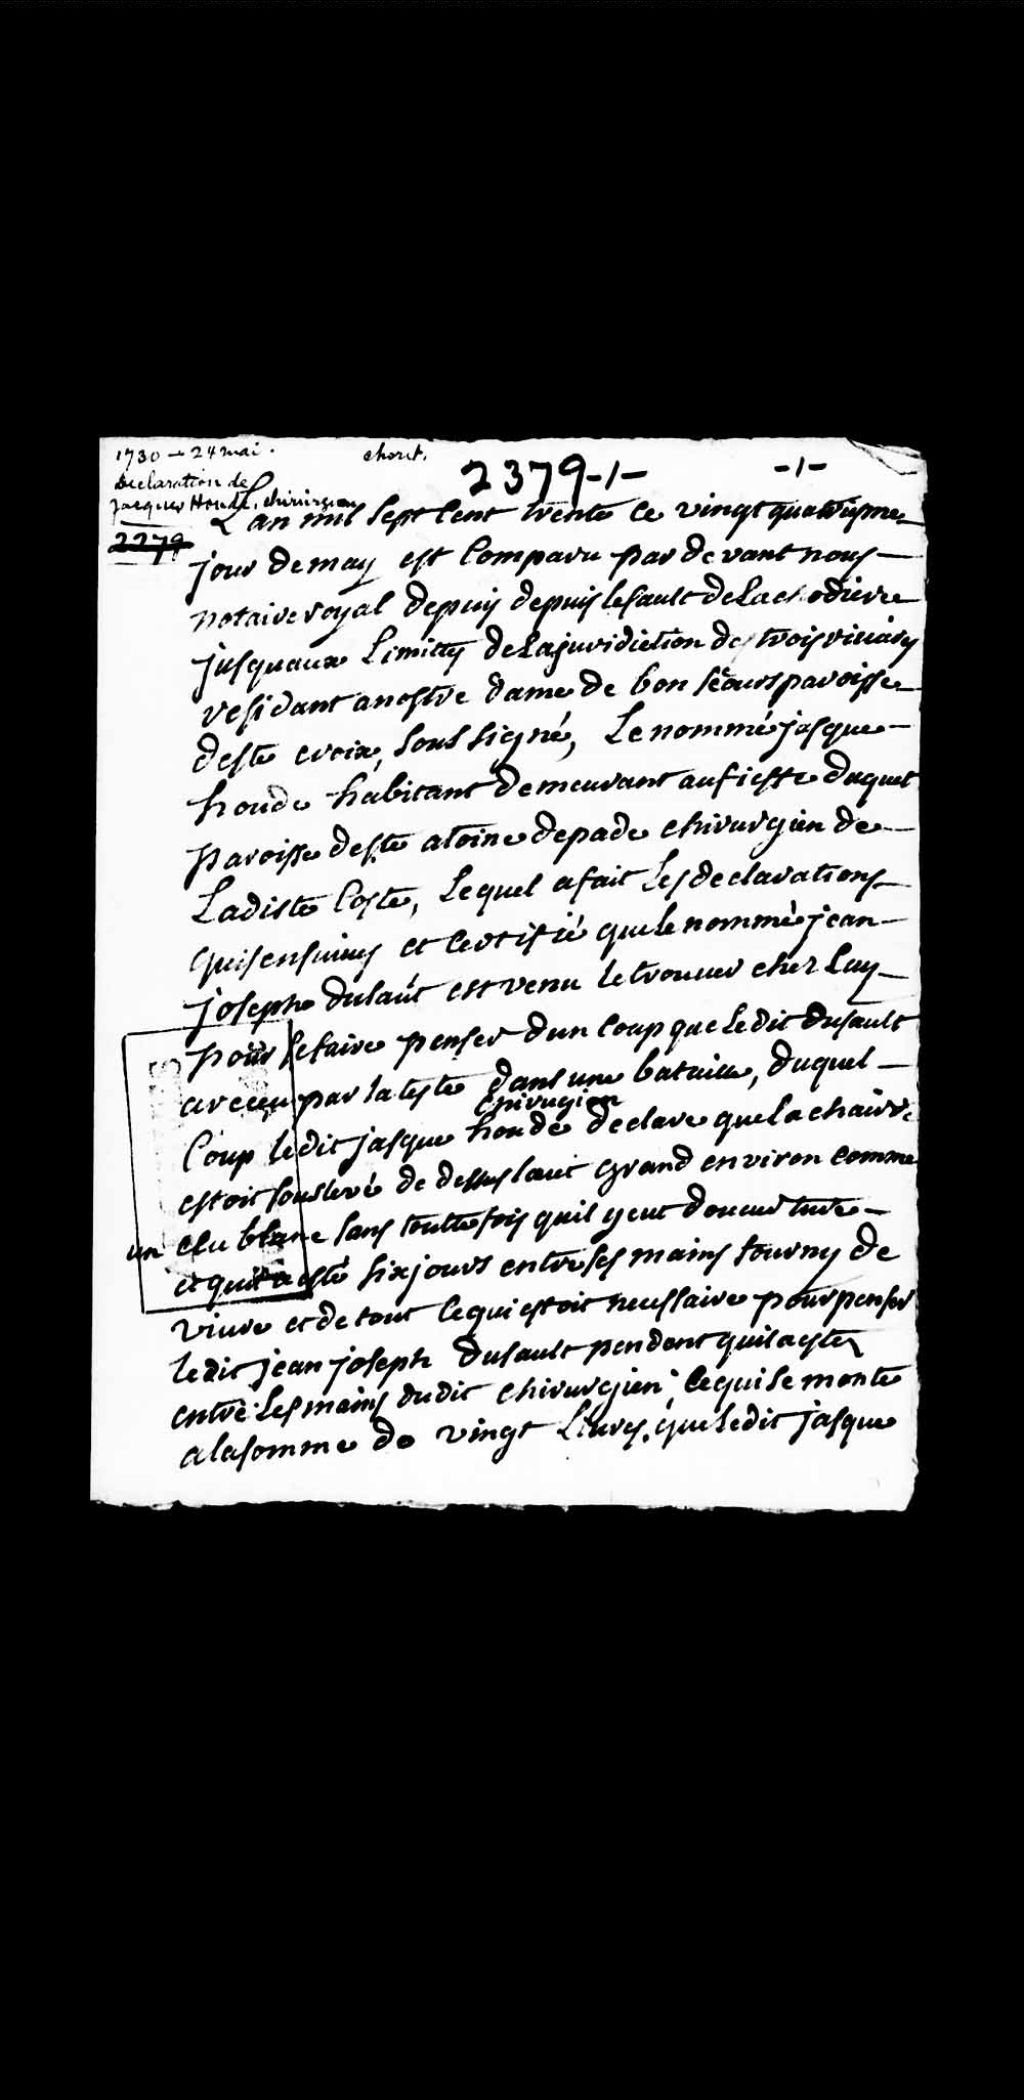 1730 - 24 mai.
choret.
2379-1-
-1-
Declaration de
Jacques Houde, chirurgien
2279
Lan mil sept cent trente ce vingt quatriesme
jour de may est comparu par devant nous
notaire royal depuis depuis le sault de la chodiere
jusquaux limitty de la juridiction des trois rivières
residant a nostre dame de bon secours paroisse
de ste croix, soussigné, Le nommé jasque
houde habitant demeurant au fieffe duquet
paroisse de ste atoine de pade chirurgien de
Ladiste coste, Lequel a fait Les declarations
qui sensuivy et certifié que le nommé jean
joseph dusaut est venu le trouver chez Luy
pour se faire penser dun coup que Le dit dusault
a receu par la teste dans une bataille, duquel
chirugien
coup ledit jasque houde declare que la chaire
estoit souslevé de dessus laut grand environ comme
un ecu blanc sans touttefois quil y eut douverture
et quil a esté six jours entre ses mains fourny de
vivre et de tout ce qui estoit necessaire pour penser
ledit jean joseph dusault pendent quil a este
entre les mains dudit chirurgien ce qui se monte
a la somme de vingt Livres. que ledit jasque